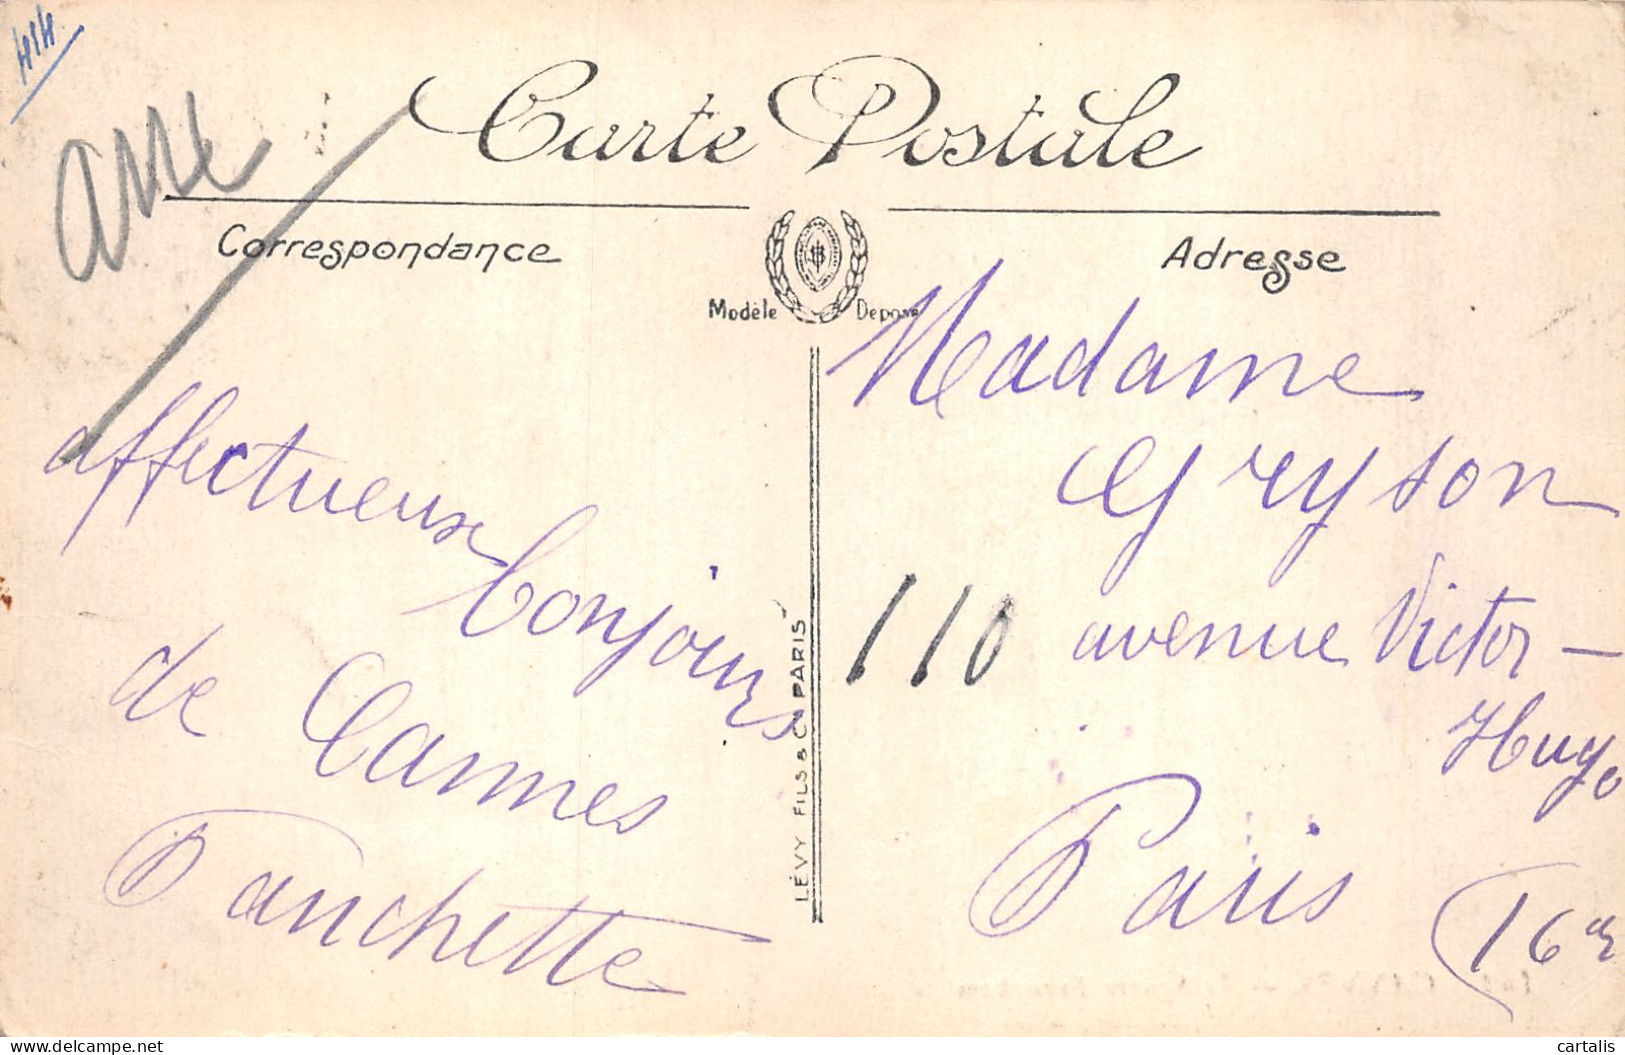 Carte Postale
Correspondance
Adresse
Modèle Déposé
affectueux
bonjours
de Cannes
Fanchette
LÉVY FILS & Cie PARIS
Madame
Greyson
110 avenue Victor-
Hugo
Paris
(16e
cartalis
www.delcampe.net